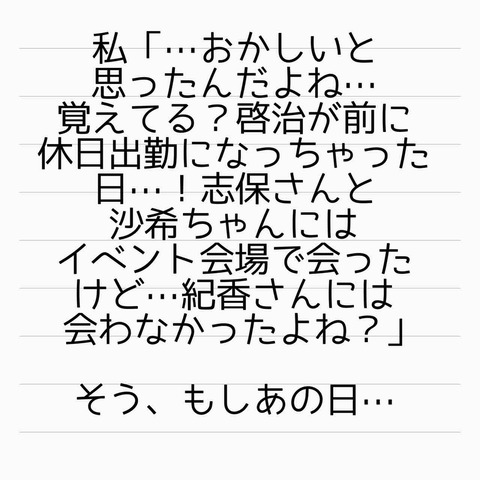 私「…おかしいと
思ったんだよね…
覚えてる？啓治が前に
休日出勤になっちゃった
日…！志保さんと
沙希ちゃんには
イベント会場で会った
けど…紀香さんには
会わなかったよね？」
そう、もしあの日…